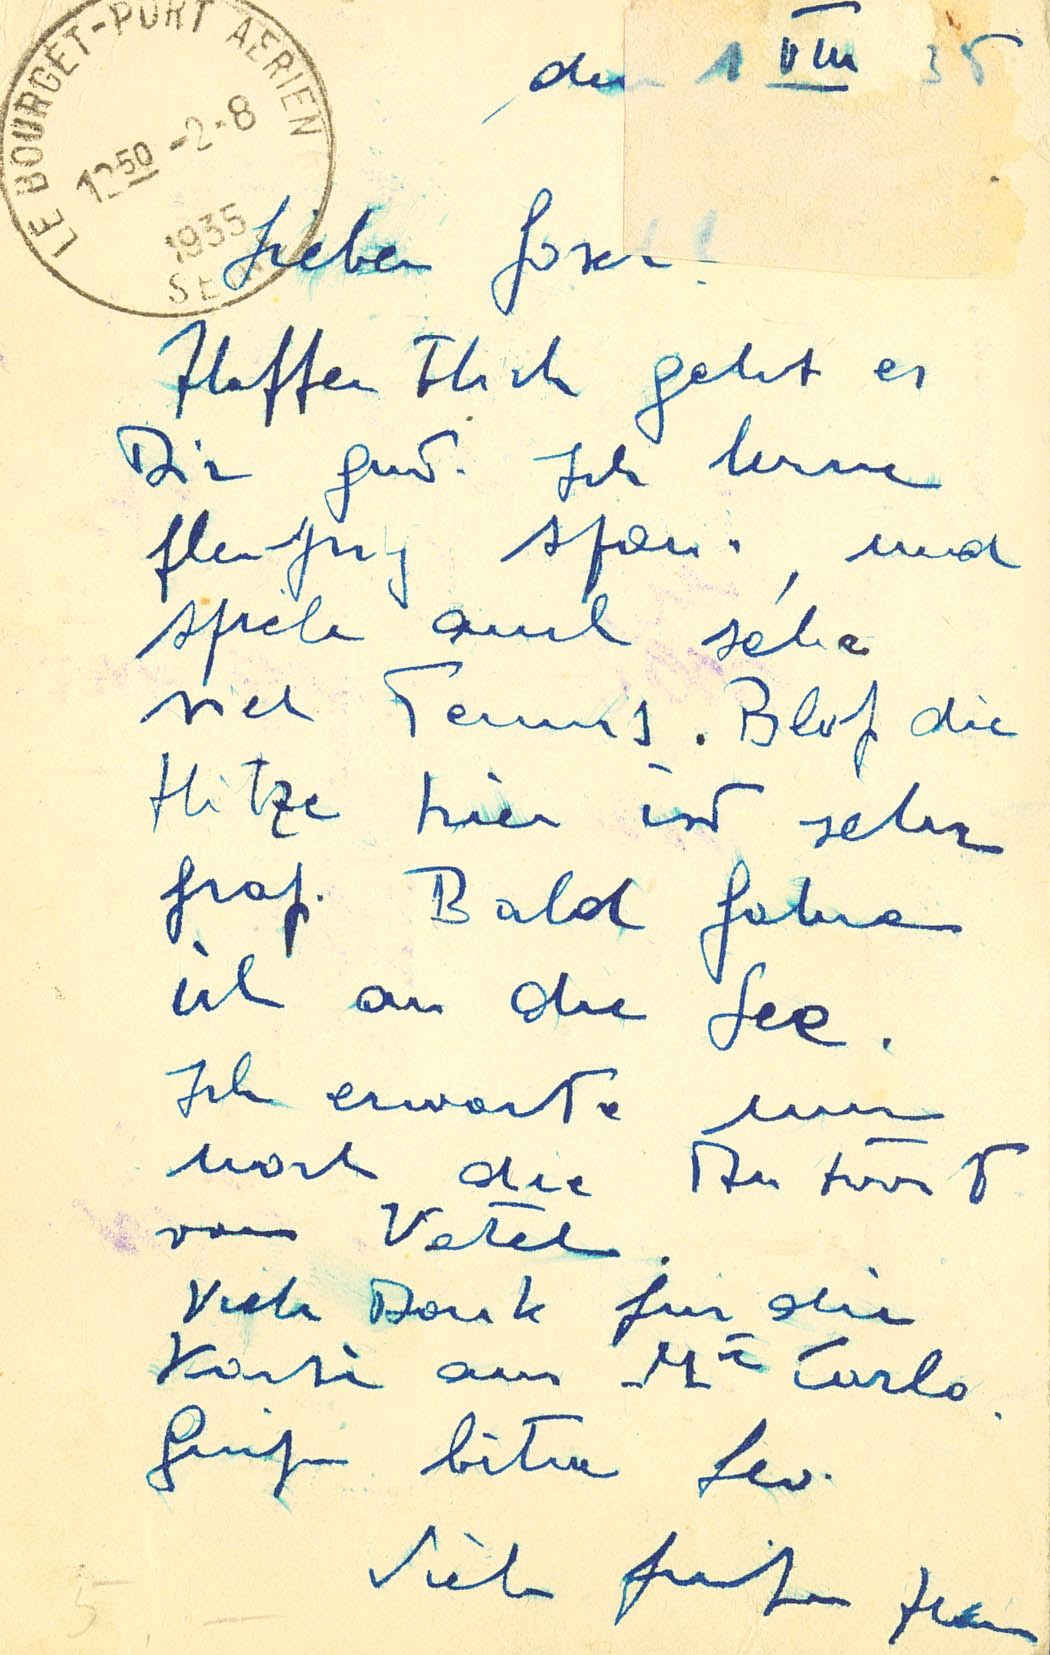 LE BOURGET-PORT AÉRIEN
12 50 -2-8
1935
den 1 VIII 35
Lieber
Hoffentlich geht es
Dir gut. Ich lerne
fleißig span., und
spiele auch sehr
viel Tennis. Bloß die
Hitze hier ist sehr
groß. Bald fahre
ich an die See.
Ich erwarte nur
noch die Antwort
von
Viele Dank für die
Karte aus Mte Carlo.
Grüße bitte Leo.
Viele Grüße